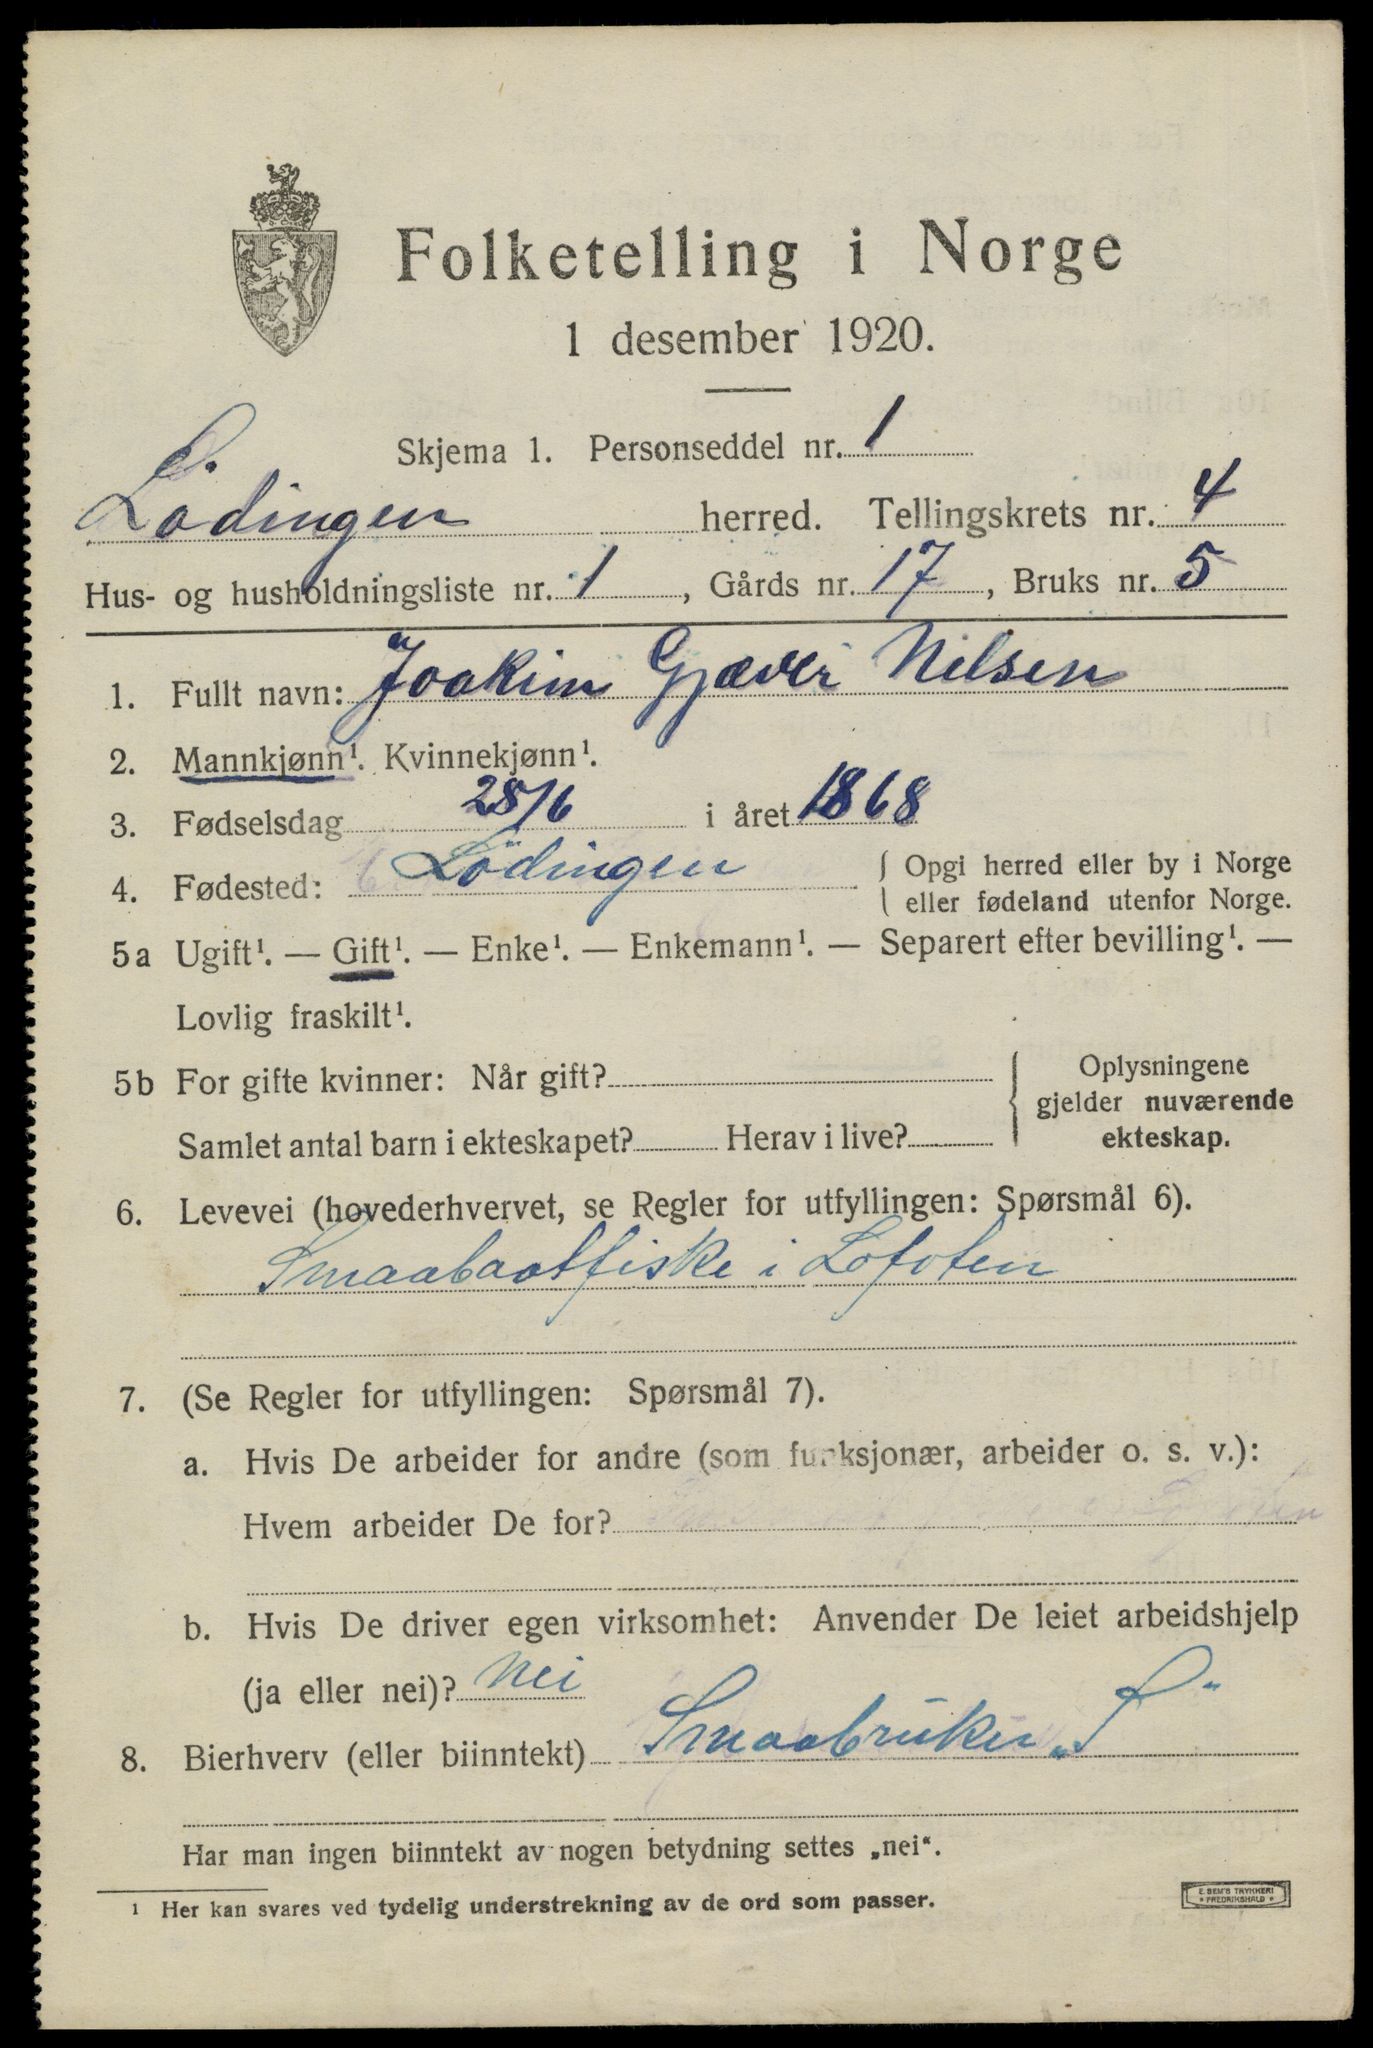 Folketelling i Norge
1 desember 1920.
Skjema 1. Personseddel nr. 1
Lödingen herred. Tellingskrets nr. 4
Hus- og husholdningsliste nr. 1, Gårds nr. 17, Bruks nr. 5
1. Fullt navn: Joakim Gjæver Nilsen
2. Mannkjønn¹. Kvinnekjønn¹.
3. Fødselsdag 28/6 i året 1868
4. Fødested: Lödingen { Opgi herred eller by i Norge
eller fødeland utenfor Norge.
5a Ugift¹. — Gift¹. — Enke¹. — Enkemann¹. — Separert efter bevilling¹. —
Lovlig fraskilt¹.
5b For gifte kvinner: Når gift?
Samlet antal barn i ekteskapet? Herav i live?
Oplysningene
gjelder nuværende
ekteskap.
6. Levevei (hovederhvervet, se Regler for utfyllingen: Spørsmål 6).
Smaabaatfiske i Lofoten
7. (Se Regler for utfyllingen: Spørsmål 7).
a. Hvis De arbeider for andre (som funksjonær, arbeider o. s. v.):
Hvem arbeider De for?
b. Hvis De driver egen virksomhet: Anvender De leiet arbeidshjelp
(ja eller nei)? Nei
8. Bierhverv (eller biinntekt) Smaabruker „S"
Har man ingen biinntekt av nogen betydning settes „nei“.
¹ Her kan svares ved tydelig understrekning av de ord som passer.
E. SEM'S TRYKKERI
FREDRIKSHALD